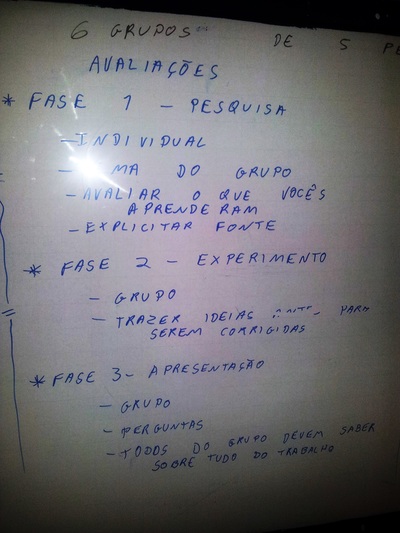 6 GRUPOS DE 5
AVALIAÇÕES
* FASE 1 - PESQUISA
- INDIVIDUAL
- DO GRUPO
- AVALIAR O QUE VOCÊS
APRENDERAM
- EXPLICITAR FONTE
* FASE 2 - EXPERIMENTO
- GRUPO
- TRAZER IDEIAS PARA
SEREM CORRIGIDAS
* FASE 3 - APRESENTAÇÃO
- GRUPO
- PERGUNTAS
- TODOS DO GRUPO DEVEM SABER
SOBRE TUDO DO TRABALHO